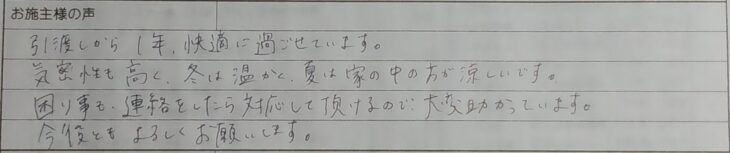 お施主様の声
引渡しから1年、快適に過ごせています。
気密性も高く、冬は温かく、夏は家の中の方が涼しいです。
困り事も、連絡をしたら対応して頂けるので、大変助かっています。
今後ともよろしくお願いします。